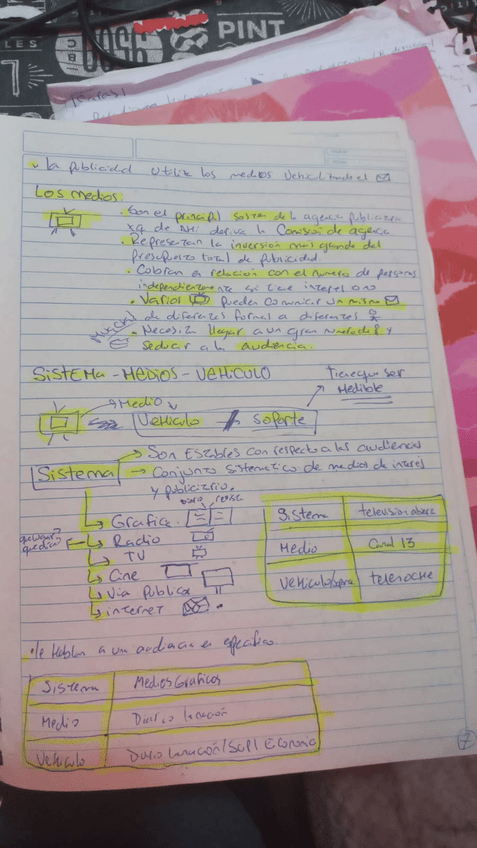 PINT
Tareas
La publicidad utiliza los medios vehiculizados el
Los medios
Son el principal sosten de la agencia publicitaria
xq de ahí deriva la comisión de agencia
Representan la inversión mas grande del
presupuesto total de publicidad.
Cobran en relación con el numero de personas
independientemente si tiene interes o no
Varios pueden comunicar un mismo
de diferentes formas a diferentes
Necesita llegar a un gran numero de P y
seducir a la audiencia
SISTEMA - MEDIOS - VEHICULO
tiene que ser
Medible
Medio
Vehiculo / soporte
Sistema
Son Estables con respecto a las audiencias
Conjunto sistematico de medios de interes
y publicitario.
diario revista
Grafica
Radio
TV
Cine
Via publica
internet
Sistema television abierta
Medio Canal 13
Vehiculo/soporte telenoche
le hablan a un audiencia en especifico.
Sistema Medios Graficos
Medio Diario la nación
Vehiculo Diario la nación/Supl Economia
7